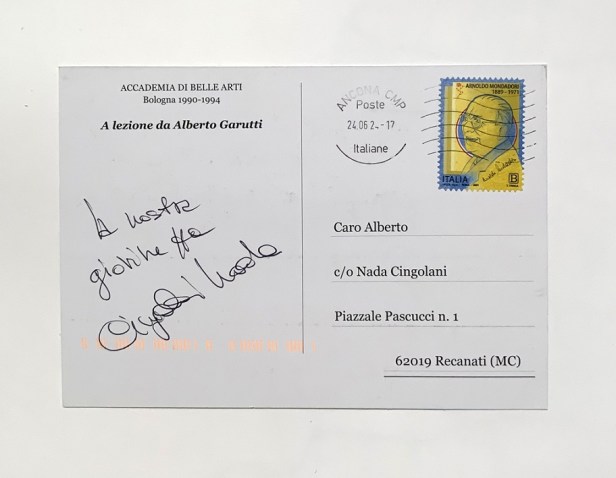 ACCADEMIA DI BELLE ARTI
Bologna 1990-1994
A lezione da Alberto Garutti
la nostra
giovinezza
Nada
ANCONA CMP
Poste
24.06.2 -17
Italiane
ARNOLDO MONDADORI
1889 - 1971
ITALIA
B
Caro Alberto
c/o Nada Cingolani
Piazzale Pascucci n. 1
62019 Recanati (MC)